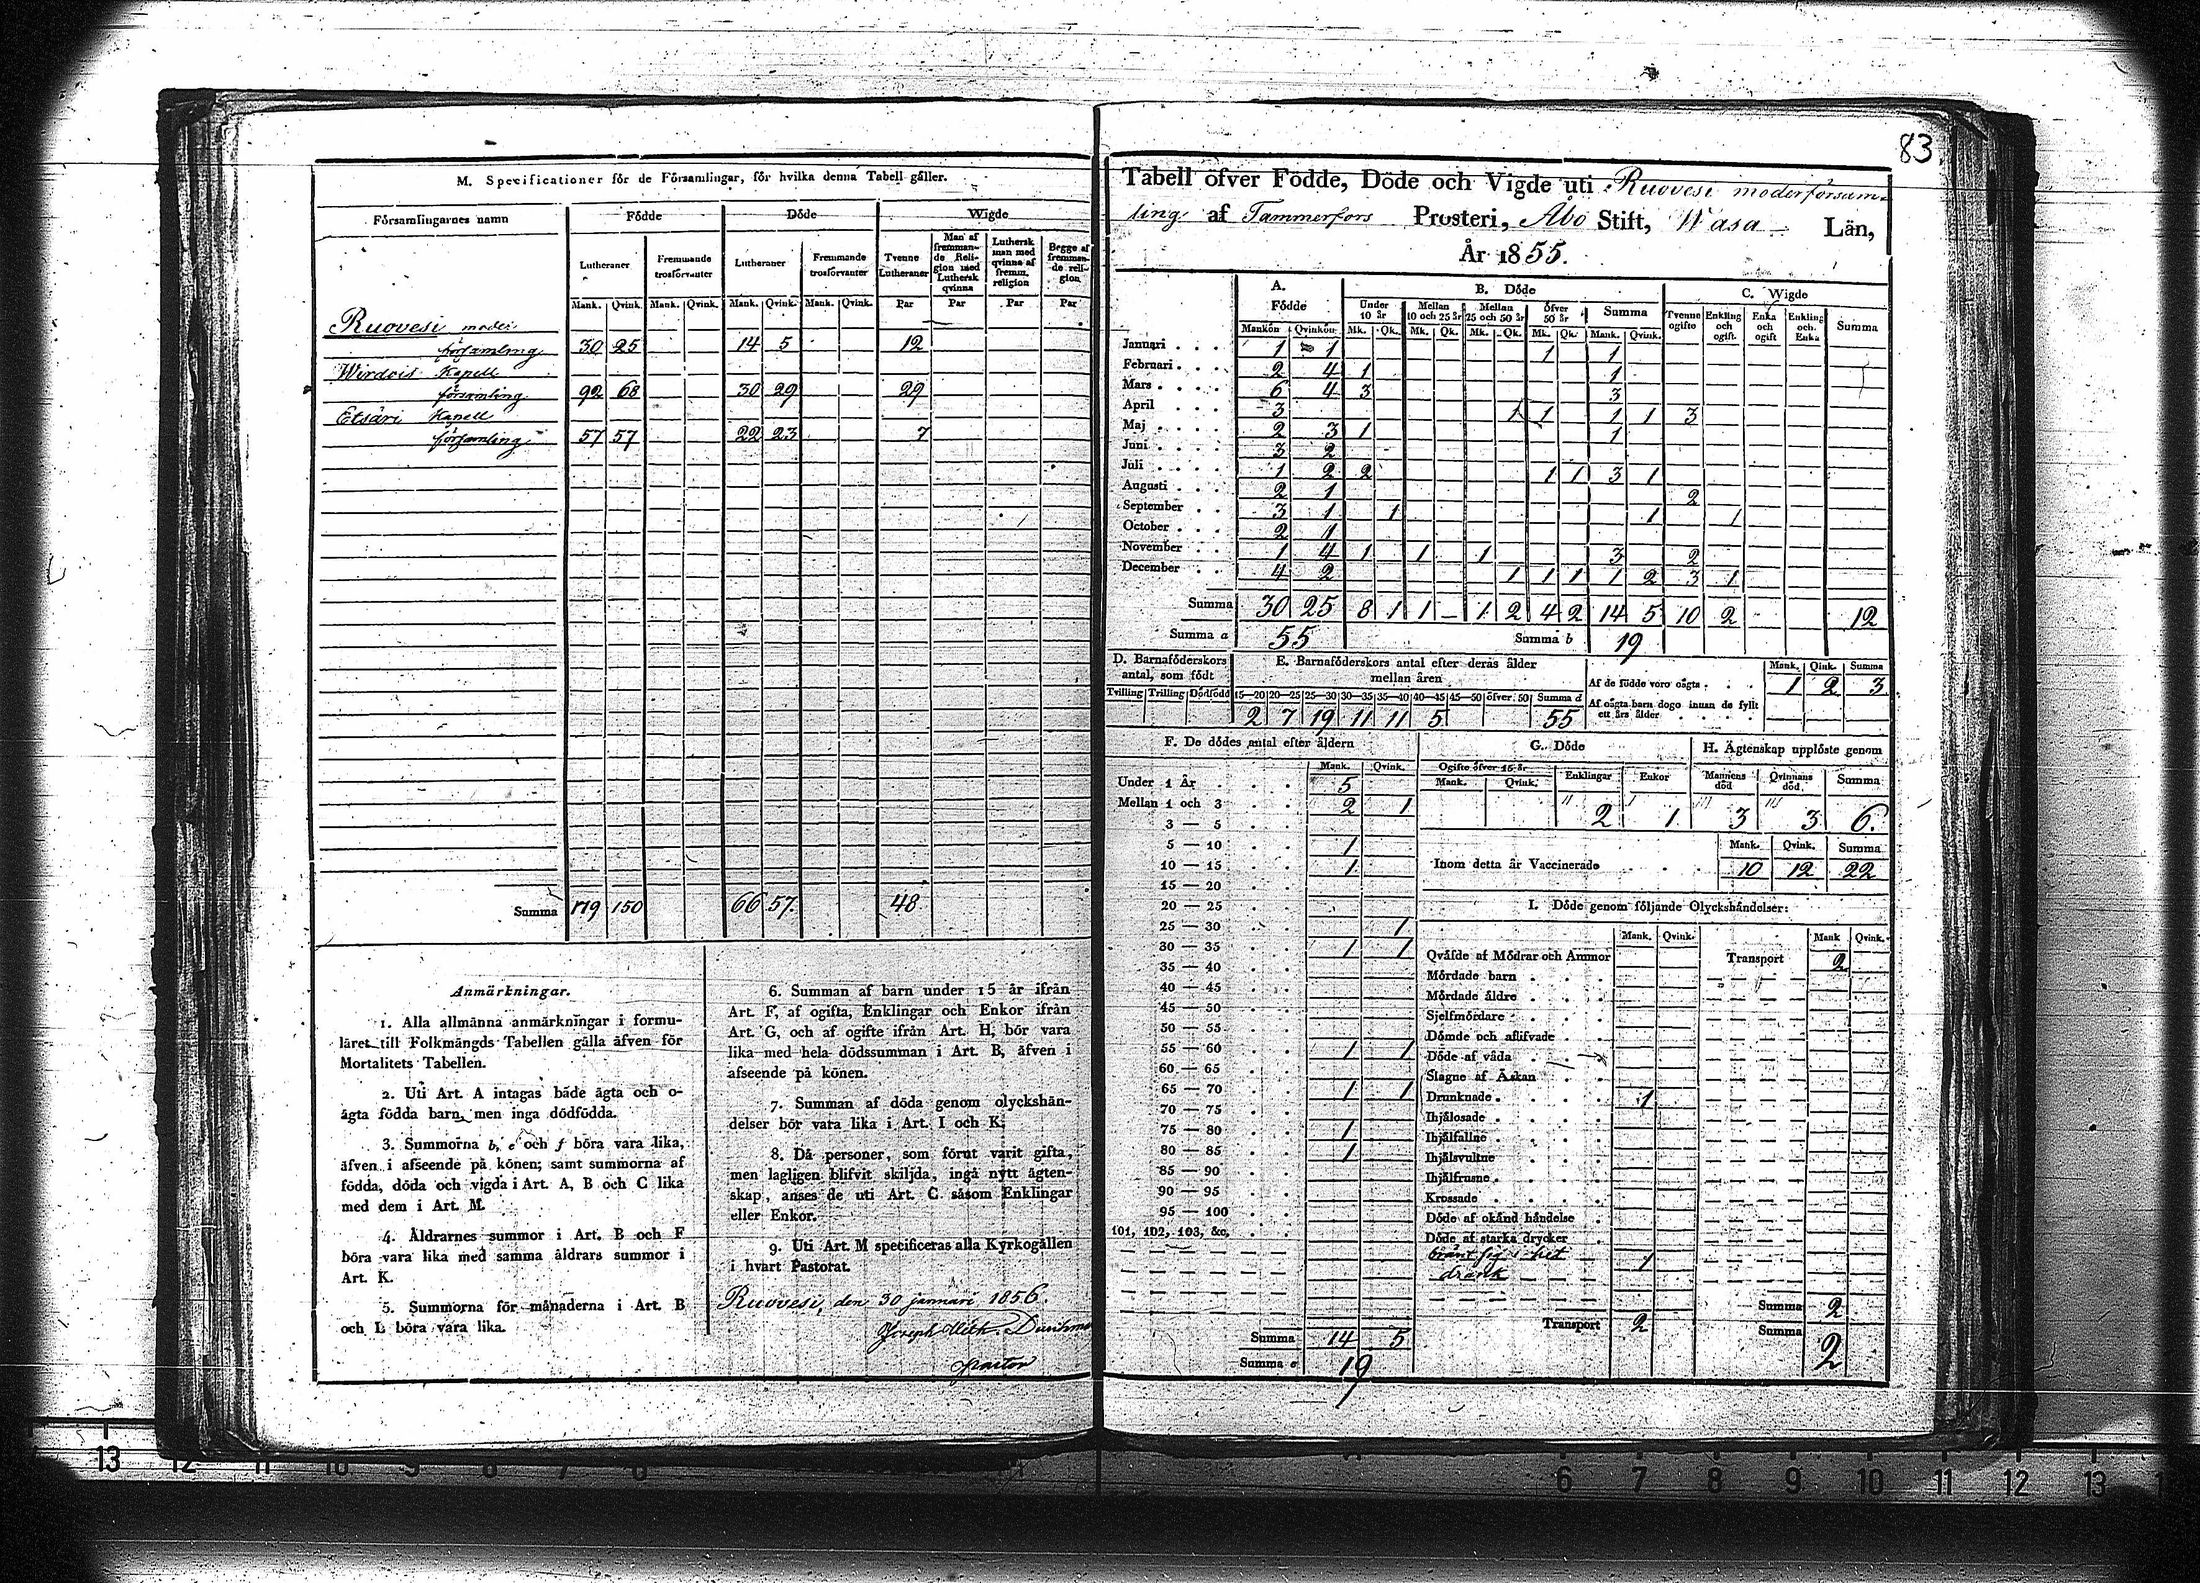 83
M. Specificationer för de Församlingar, för hvilka denna Tabell gäller.
Församlingarnes namn | Födde | Döde | Wigde
Lutheraner | Fremmande trosförvanter | Lutheraner | Fremmande trosförvanter | Tvenne Lutheraner | Man af fremmande Religion med Luthersk qvinna | Luthersk man med qvinna af fremm. religion | Begge af fremmande religion
Mank. | Qvink. | Mank. | Qvink. | Mank. | Qvink. | Mank. | Qvink. | Par | Par | Par | Par
Ruovesi moder
församling 30 25 14 5 12
Wirdois Kapell
församling 92 68 30 29 29
Etsäri Kapell
församling 57 57 22 23 7
Summa 179 150 66 57 48
Anmärkningar.
1. Alla allmänna anmärkningar i formu-
läret till Folkmängds Tabellen gälla äfven för
Mortalitets Tabellen.
2. Uti Art. A intagas både ägta och o-
ägta födda barn, men inga dödfödda.
3. Summorna b, e och f böra vara lika,
äfven i afseende på könen; samt summorna af
födda, döda och vigda i Art. A, B och C lika
med dem i Art. M.
4. Åldrarnes summor i Art. B och F
böra vara lika med samma åldrars summor i
Art. K.
5. Summorna för månaderna i Art. B
och L böra vara lika.
6. Summan af barn under 15 år ifrån
Art. F, af ogifta, Enklingar och Enkor ifrån
Art. G, och af ogifte ifrån Art. H, bör vara
lika med hela dödssumman i Art. B, äfven i
afseende på könen.
7. Summan af döda genom olyckshän-
delser bör vara lika i Art. I och K.
8. Då personer, som förut varit gifta,
men lagligen blifvit skiljda, ingå nytt ägten-
skap, anses de uti Art. C. såsom Enklingar
eller Enkor.
9. Uti Art. M specificeras alla Kyrkogällen
i hvart Pastorat.
Ruovesi, den 30 januari 1856.
Joseph Wilh.
pastor
Tabell öfver Födde, Döde och Vigde uti Ruovesi moderförsam-
ling af Tammerfors Prosteri, Åbo Stift, Wasa Län,
År 1855.
A. Födde | B. Döde | C. Wigde
Under 10 år | Mellan 10 och 25 år | Mellan 25 och 50 år | öfver 50 år | Summa | Tvenne ogifte | Enkling och ogift. | Enka och ogift | Enkling och Enka | Summa
Mankön | Qvinkön | Mk. | Qk. | Mk. | Qk. | Mk. | Qk. | Mk. | Qk. | Mank. | Qvink.
Januari 1 1 1 1
Februari 2 4 1 1
Mars 6 4 3 3
April 3 1 1 1 1 3
Maj 2 3 1 1
Juni 3 2
Juli 1 2 2 1 1 3 1
Augusti 2 1 2
September 3 1 1 1 1
October 2 1
November 1 4 1 1 1 3 2
December 4 2 1 1 1 1 2 3 1
Summa 30 25 8 1 1 – 1 2 4 2 14 5 10 2 12
Summa a 55 Summa b 19
D. Barnaföderskors antal, som födt
Tvilling | Trilling | Dödfödd
E. Barnaföderskors antal efter deras ålder mellan åren
15—20 | 20—25 | 25—30 | 30—35 | 35—40 | 40—45 | 45—50 | öfver 50 | Summa d
2 7 19 11 11 5 55
Mank. | Qink. | Summa
Af de födde voro oägta 1 2 3
Af oägta barn dogo innan de fyllt ett års ålder
F. De dödes antal efter åldern
Mank. | Qvink.
Under 1 År 5
Mellan 1 och 3 2 1
3 — 5
5 — 10 1
10 — 15 1
15 — 20
20 — 25
25 — 30 1
30 — 35 1 1
35 — 40
40 — 45
45 — 50
50 — 55
55 — 60 1 1
60 — 65
65 — 70 1 1
70 — 75
75 — 80 1
80 — 85 1
85 — 90
90 — 95
95 — 100
101, 102, 103, &c,
Summa 14 5
Summa e 19
G. Döde
Ogifte öfver 15 år | Enklingar | Enkor
Mank. | Qvink.
2 1
H. Ägtenskap upplöste genom
Mannens död | Qvinnans död. | Summa
3 3 6.
Mank. | Qvink. | Summa
Inom detta år Vaccinerade 10 12 22
I. Döde genom följande Olyckshändelser:
Mank. | Qvink. | Mank | Qvink.
Qväfde af Mödrar och Ammor Transport 2
Mördade barn
Mördade äldre
Sjelfmördare
Dömde och aflifvade
Döde af våda
Slagne af Åskan
Drunknade 1
Ihjälosade
Ihjälfallne
Ihjälsvultne
Ihjälfrusne
Krossade
Döde af okänd händelse
Döde af starka drycker
bränt sig i het 1
drank
Transport 2
Summa 2
Summa 2
13 12 11 10 9 8 7 8
6 7 8 9 10 11 12 13